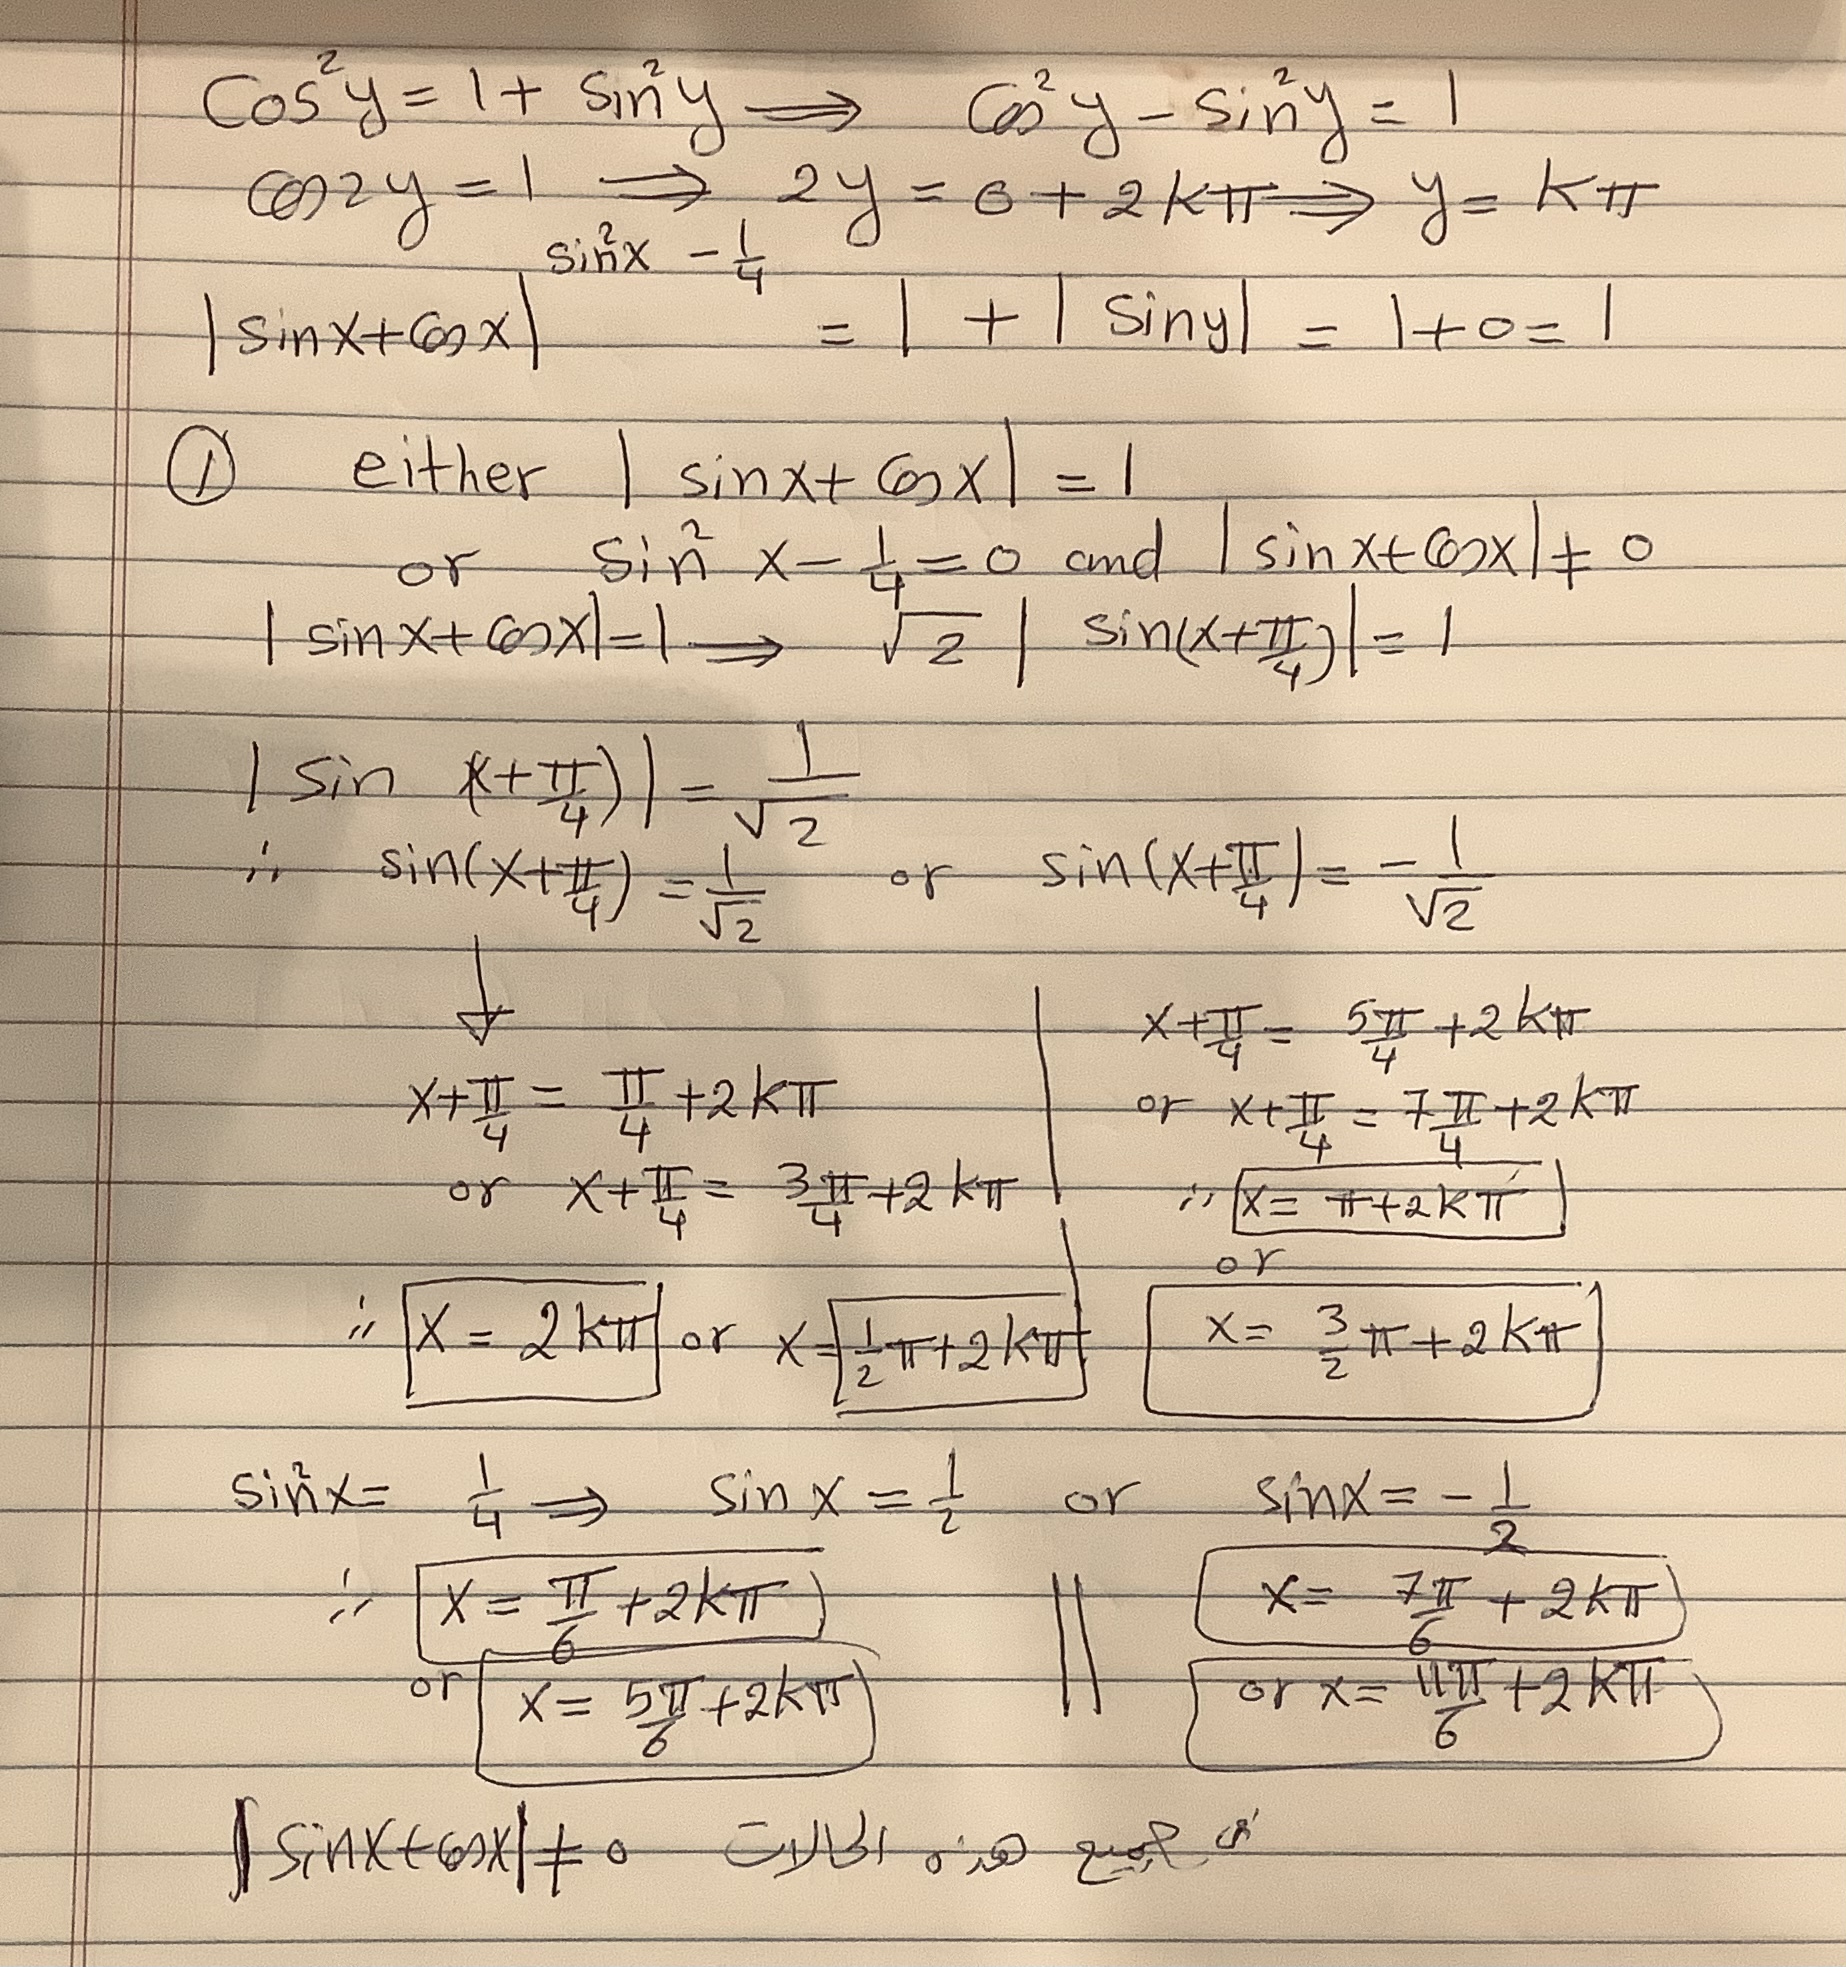 Cos²y = 1 + sin²y ⟹ Cos²y − sin²y = 1
cos2y = 1 ⟹ 2y = 0 + 2kπ ⟹ y = kπ
|sinx+cosx|^(sin²x − 1/4) = 1 + |siny| = 1+0 = 1
① either |sinx+cosx| = 1
or sin²x − 1/4 = 0 and |sinx+cosx| ≠ 0
|sinx+cosx| = 1 ⟹ √2 |sin(x+π/4)| = 1
|sin (x+π/4)| = 1/√2
∴ sin(x+π/4) = 1/√2 or sin(x+π/4) = −1/√2
↓
x+π/4 = π/4 + 2kπ
or x+π/4 = 3π/4 + 2kπ
x+π/4 = 5π/4 + 2kπ
or x+π/4 = 7π/4 + 2kπ
∴ x = π+2kπ
or
∴ x = 2kπ or x = 1/2 π+2kπ x = 3/2 π+2kπ
sin²x = 1/4 ⟹ sin x = 1/2 or sinx = −1/2
∴ x = π/6 + 2kπ || x = 7π/6 + 2kπ
or x = 5π/6 + 2kπ or x = 11π/6 + 2kπ
|sinx+cosx| ≠ 0 في جميع هذه الحالات